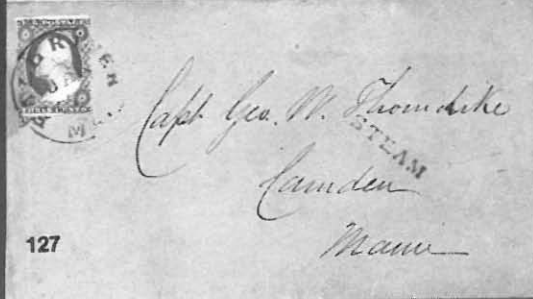 Capt Geo. W. Thorndike
STEAM
Camden
Maine
127